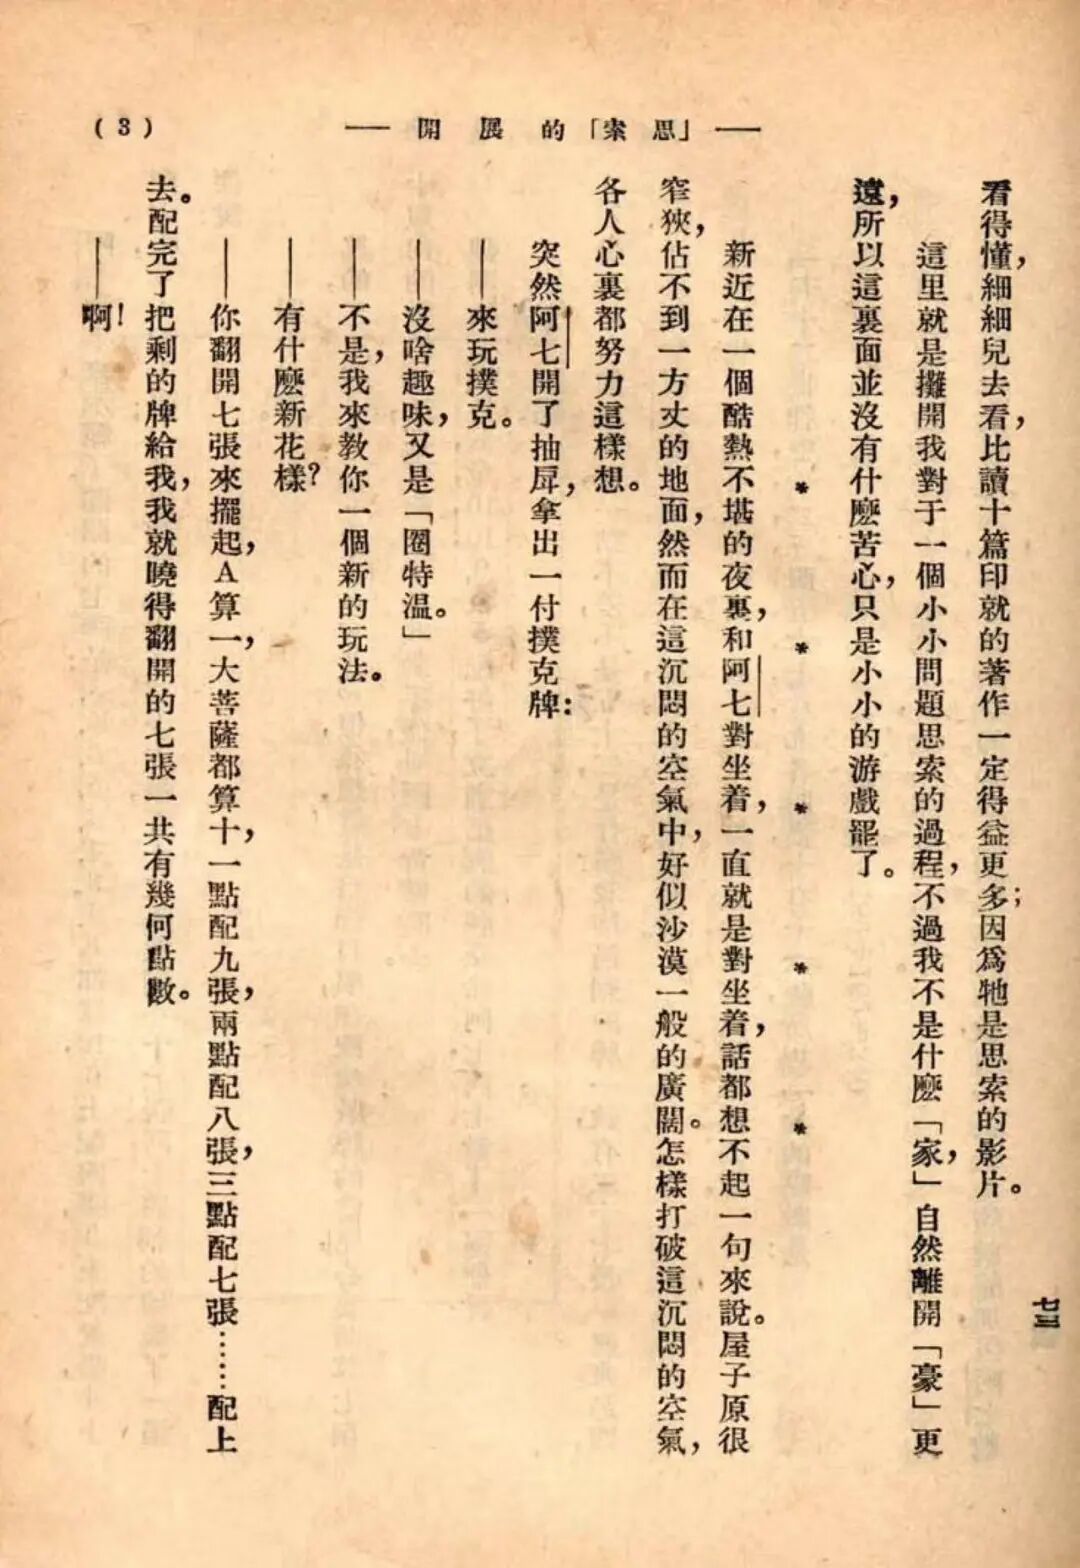 (3)
── 開展的「索思」 ──
七三
看得懂，細細兒去看，比讀十篇印就的著作一定得益更多；因爲牠是思索的影片。
這里就是攤開我對于一個小小問題思索的過程，不過我不是什麽「家」，自然離開「豪」更
遠，所以這裏面並沒有什麽苦心，只是小小的游戲罷了。
* * * * *
新近在一個酷熱不堪的夜裏，和阿七對坐着，一直就是對坐着，話都想不起一句來說。屋子原很
窄狹，佔不到一方丈的地面，然而在這沉悶的空氣中，好似沙漠一般的廣闊。怎樣打破這沉悶的空氣，
各人心裏都努力這樣想。
突然阿七開了抽屜，拿出一付撲克牌：
——來玩撲克。
——沒啥趣味，又是「圈特温。」
——不是，我來教你一個新的玩法。
——有什麽新花樣？
——你翻開七張來擺起，A算一，大菩薩都算十，一點配九張，兩點配八張，三點配七張……配上
去。配完了把剩的牌給我，我就曉得翻開的七張一共有幾何點數。
——啊！